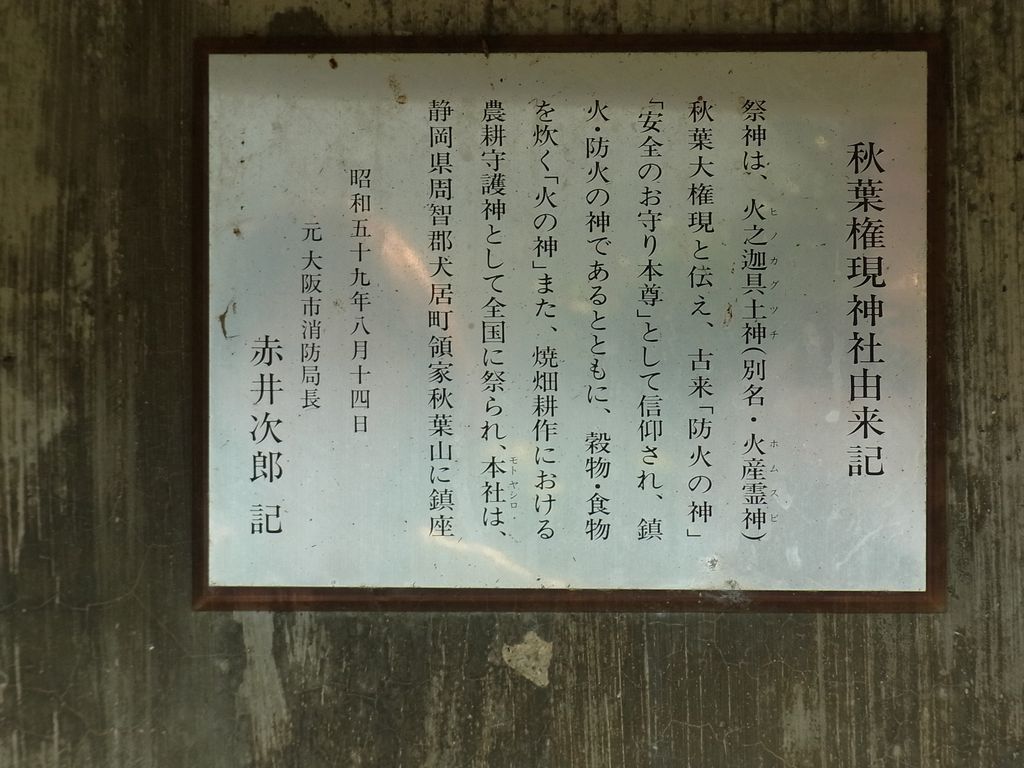 秋葉権現神社由来記
祭神は、火之迦具土神(別名・火産霊神)
ヒノカグツチ ホムスビ
秋葉大権現と伝え、古来「防火の神」
「安全のお守り本尊」として信仰され、鎮
火・防火の神であるとともに、穀物・食物
を炊く「火の神」また、焼畑耕作における
農耕守護神として全国に祭られ、本社は、
モトヤシロ
静岡県周智郡犬居町領家秋葉山に鎮座
昭和五十九年八月十四日
元 大阪市消防局長
赤井次郎 記